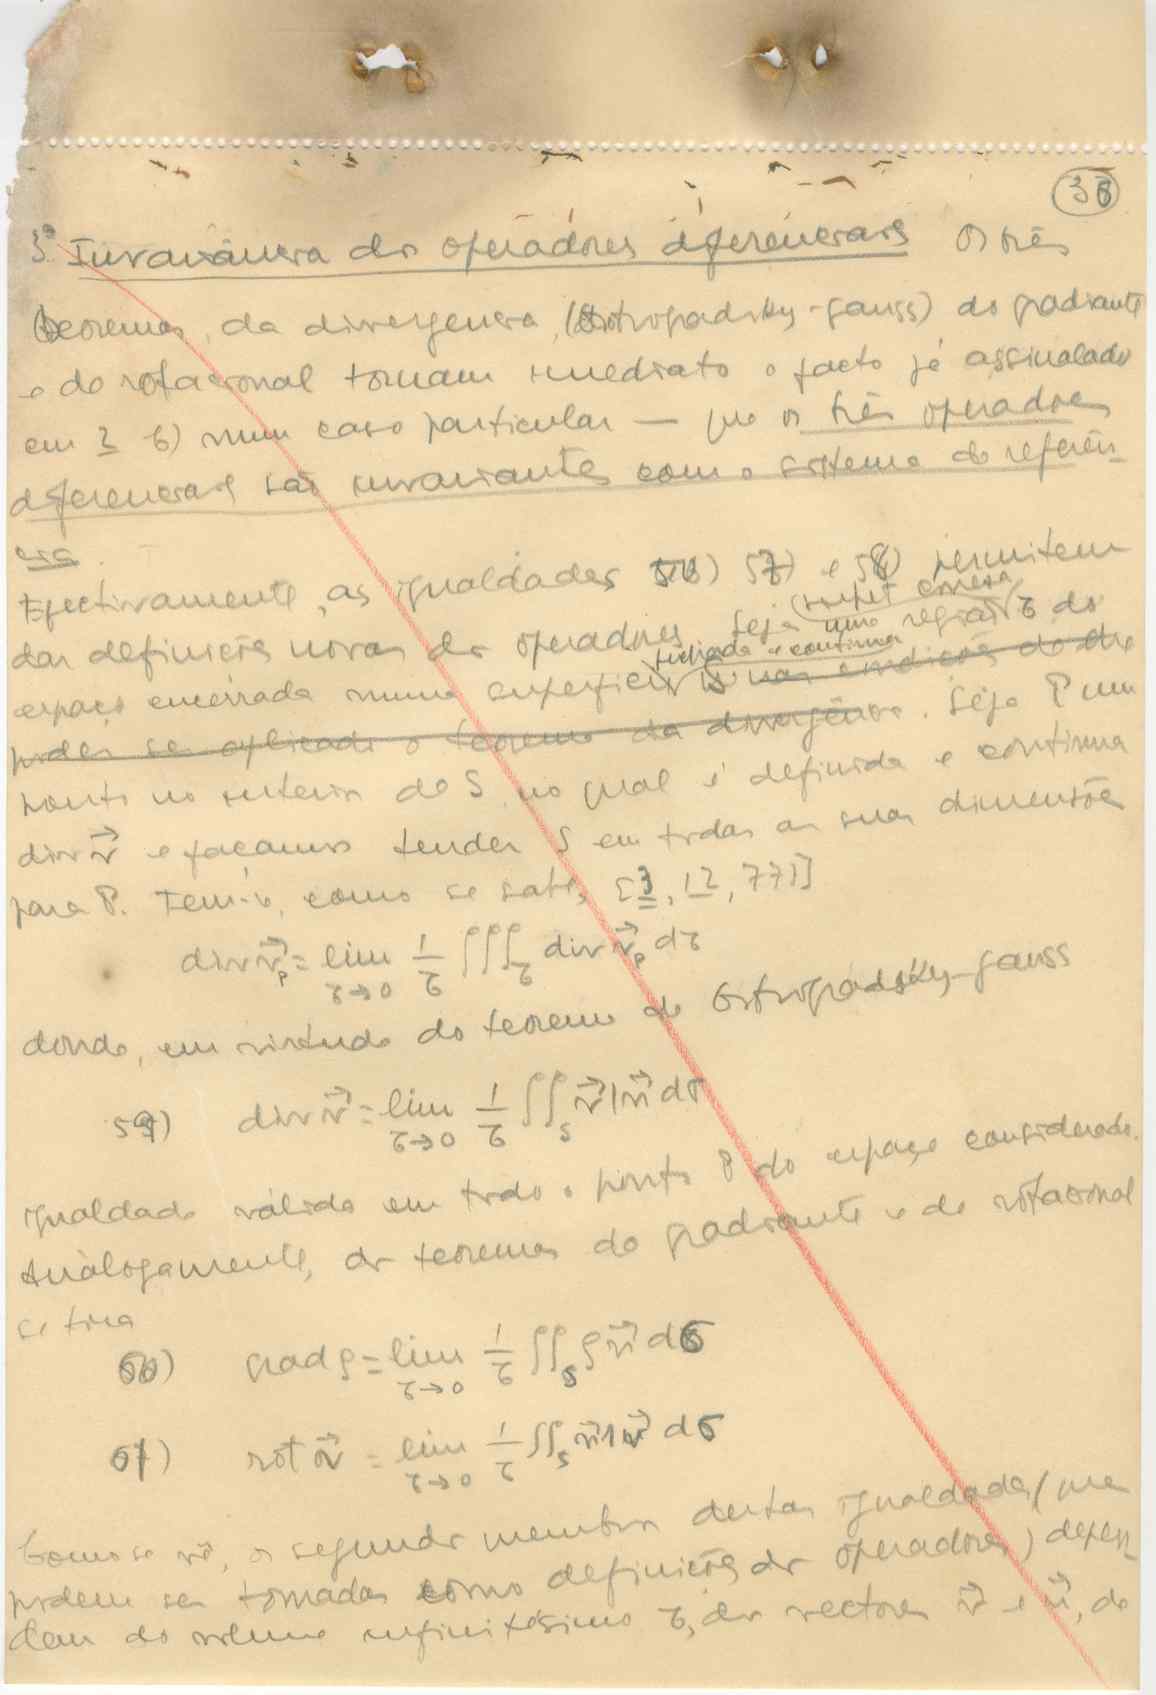 38
3º Invariância dos operadores diferenciais Os três
teoremas, da divergência, (Ostrogradsky-Gauss) do gradiante
e do rotacional tornam imediato o facto já assinalado
em 3 6) num caso particular — que os três operadores
diferenciais são invariantes com o sistema de referên-
cia.
Efectivamente, as igualdades 56) 57) e 58) permitem
dar definições novas dos operadores. Seja uma região τ do
fechada e contínua
espaço encerrada numa superfície S nas condições de lhe
poder ser aplicado o teorema da divergência. Seja P um
ponto no interior de S no qual é definida e contínua
div v⃗ e façamos tender S em todas as suas dimensões
para P. Tem-se, como se sabe, [3, 12, 771]
div v⃗ₚ = lim τ→0 1/τ ∫∫∫_τ div v⃗ₚ dτ
donde, em virtude do teorema de Ostrogradsky-Gauss
59) div v⃗ = lim τ→0 1/τ ∫∫_S v⃗|n⃗ dσ
igualdade válida em todo o ponto P do espaço considerado.
Anàlogamente, dos teoremas do gradiante e do rotacional
se tira
60) grad ρ = lim τ→0 1/τ ∫∫_S ρ n⃗ dσ
61) rot v⃗ = lim τ→0 1/τ ∫∫_S n⃗∧v⃗ dσ
Como se vê, os segundos membros destas igualdades (que
podem ser tomadas como definições dos operadores) depen-
dem do volume infinitésimo τ, dos vectores v⃗ e n⃗, do